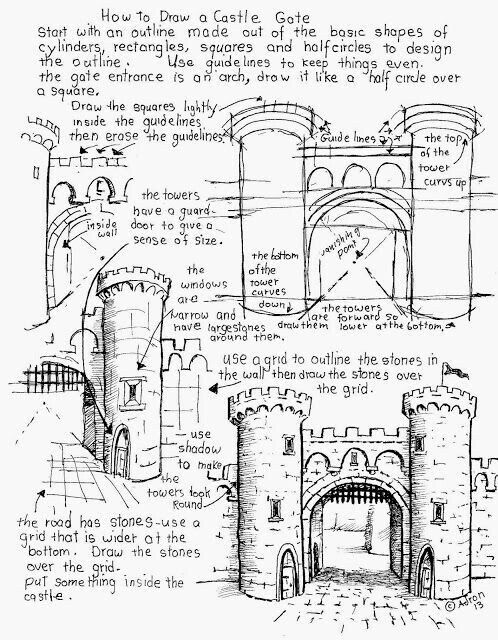 How to Draw a Castle Gate
Start with an outline made out of the basic shapes of
cylinders, rectangles, squares and halfcircles to design
the outline. Use guidelines to keep things even.
the gate entrance is an arch, draw it like a half circle over
a square.
Draw the squares lightly
inside the guidelines
then erase the guidelines.
Guide lines
the top
of the
tower
curvs up
inside
wall
the towers
have a guard-
door to give a
sense of size.
vanishing
point
the bottom
of the
tower
curves
down.
the towers
are forward so
draw them lower at the bottom.
the
windows
are
narrow and
have large stones
around them.
use a grid to outline the stones in
the wall then draw the stones over
the grid.
use
shadow
to make
the
towers look
Round
the road has stones-use a
grid that is wider at the
bottom. Draw the stones
over the grid.
put something inside the
castle.
© Adron
13